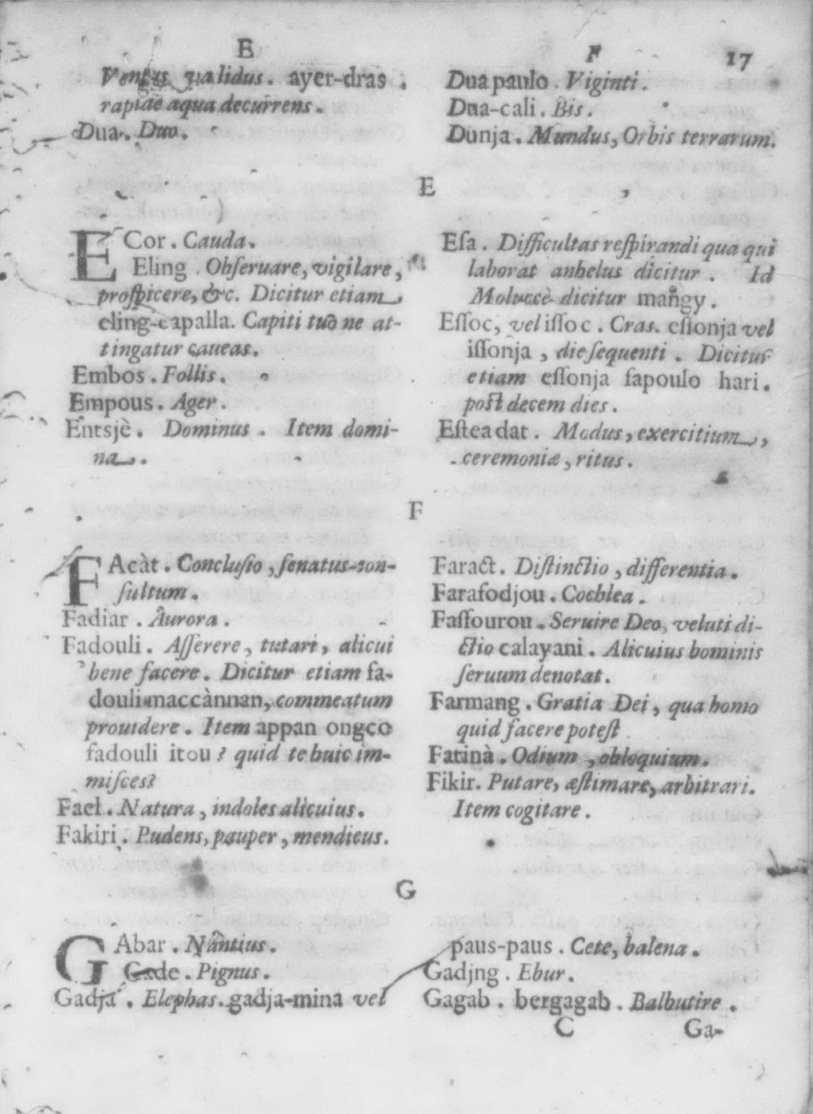 E
F
17
Ventus validus. ayer-dras.
rapidæ aqua decurrens.
Dua. Duo.
Dua paulo. Viginti.
Dua-cali. Bis.
Dunja. Mundus, Orbis terrarum.
E
ECor. Cauda.
Eling. Obseruare, vigilare,
prospicere, &c. Dicitur etiam
eling-capalla. Capiti tuo ne at-
tingatur caueas.
Embos. Follis.
Empous. Ager.
Entsjè. Dominus. Item domi-
na.
Esa. Difficultas respirandi qua qui
laborat anhelus dicitur. Id
Moluccè dicitur mañgy.
Essoc, vel issoc. Cras. essonja vel
issonja, die sequenti. Dicitur
etiam essonja sapoulo hari.
post decem dies.
Esteadat. Modus, exercitium,
ceremoniæ, ritus.
F
FAcàt. Conclusio, senatus-con-
sultum.
Fadiar. Aurora.
Fadouli. Asserere, tutari, alicui
bene facere. Dicitur etiam fa-
douli maccànnan, commeatum
prouidere. Item appan ongco
fadouli itou? quid te huic im-
misces?
Fael. Natura, indoles alicuius.
Fakiri. Pudens, pauper, mendicus.
Faract. Distinctio, differentia.
Farafodjou. Cochlea.
Fassourou. Seruire Deo, veluti di-
ctio calayani. Alicuius hominis
seruum denotat.
Farmang. Gratia Dei, qua homo
quid facere potest
Fatinà. Odium, obloquium.
Fikir. Putare, æstimare, arbitrari.
Item cogitare.
G
GAbar. Nântius.
Gade. Pignus.
Gadja. Elephas. gadja-mina vel
paus-paus. Cete, balena.
Gadjng. Ebur.
Gagab. bergagab. Balbutire.
C
Ga-